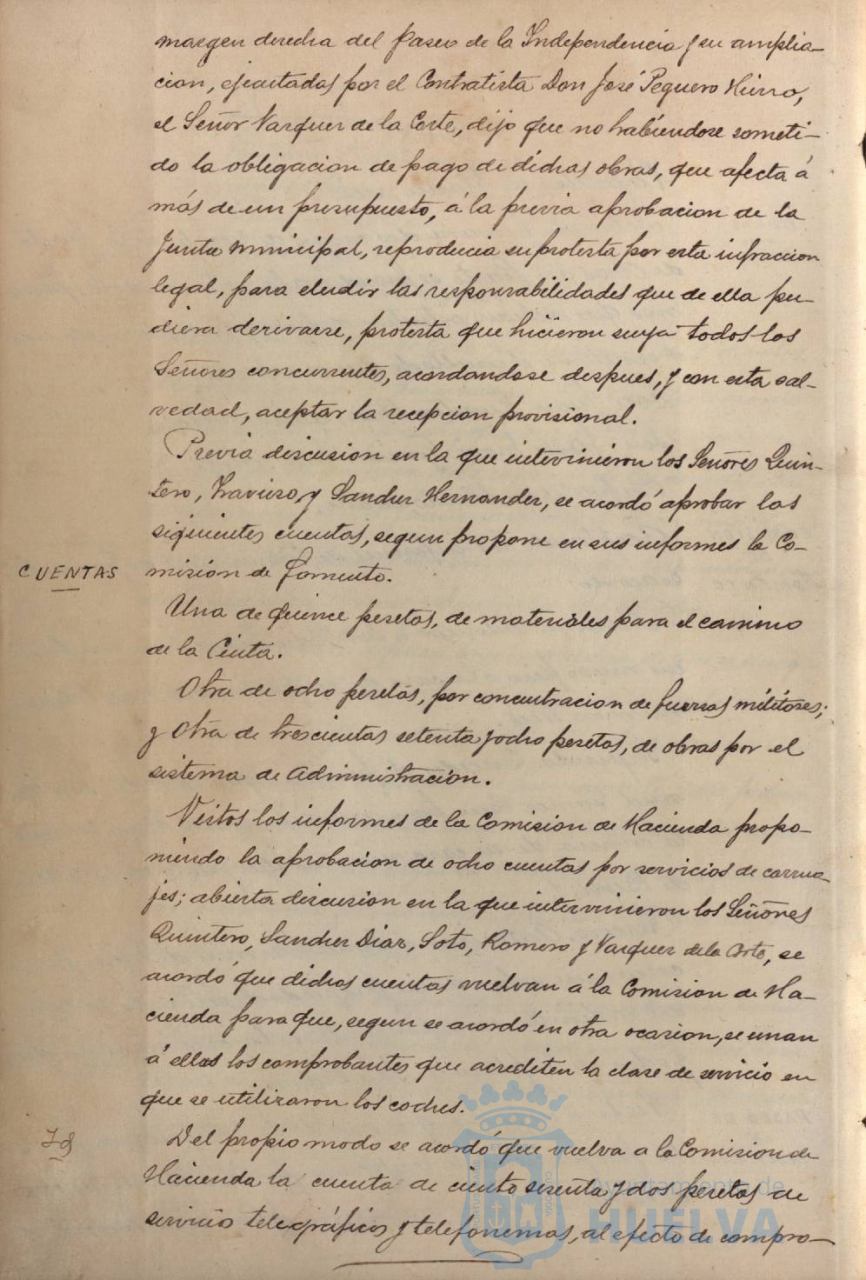 margen derecha del Paseo de la Independencia y su amplia-
cion, ejecutadas por el Contratista Don José Peguero Hierro,
el Señor Vazquez de la Corte, dijo que no habiendose someti-
do la obligacion de pago de dichas obras, que afecta á
más de un presupuesto, á la previa aprobacion de la
Junta municipal, reproducia su protesta por esta infraccion
legal, para eludir las responsabilidades que de ella pu-
diera derivarse, protesta que hicieron suya todos los
Señores concurrentes, acordandose despues, y con esta sal-
vedad, aceptar la recepcion provisional.
Previa discusion en la que intervinieron los Señores Quin-
tero, Travieso y Sanchez Hernandez, se acordó aprobar las
siguientes cuentas, segun propone en sus informes la Co-
CUENTAS
mision de Fomento.
Una de quince pesetas, de materiales para el camino
de la Cinta.
Otra de ocho pesetas, por concentracion de fuerzas militares;
y Otra de trescientas setenta y ocho pesetas, de obras por el
sistema de Administracion.
Vistos los informes de la Comision de Hacienda propo-
niendo la aprobacion de ocho cuentas por servicios de carrua-
jes; abierta discusion en la que intervinieron los Señores
Quintero, Sanchez Diaz, Soto, Romero y Vazquez de la Corte, se
acordó que dichas cuentas vuelvan á la Comision de Ha-
cienda para que, segun se acordó en otra ocasion, se unan
á ellas los comprobantes que acrediten la clase de servicio en
que se utilizaron los coches.
Id
Del propio modo se acordó que vuelva a la Comision de
Hacienda la cuenta de ciento sesenta y dos pesetas de
servicio telegráfico y telefonemas, al efecto de compro-
ayuntamiento de
HUELVA